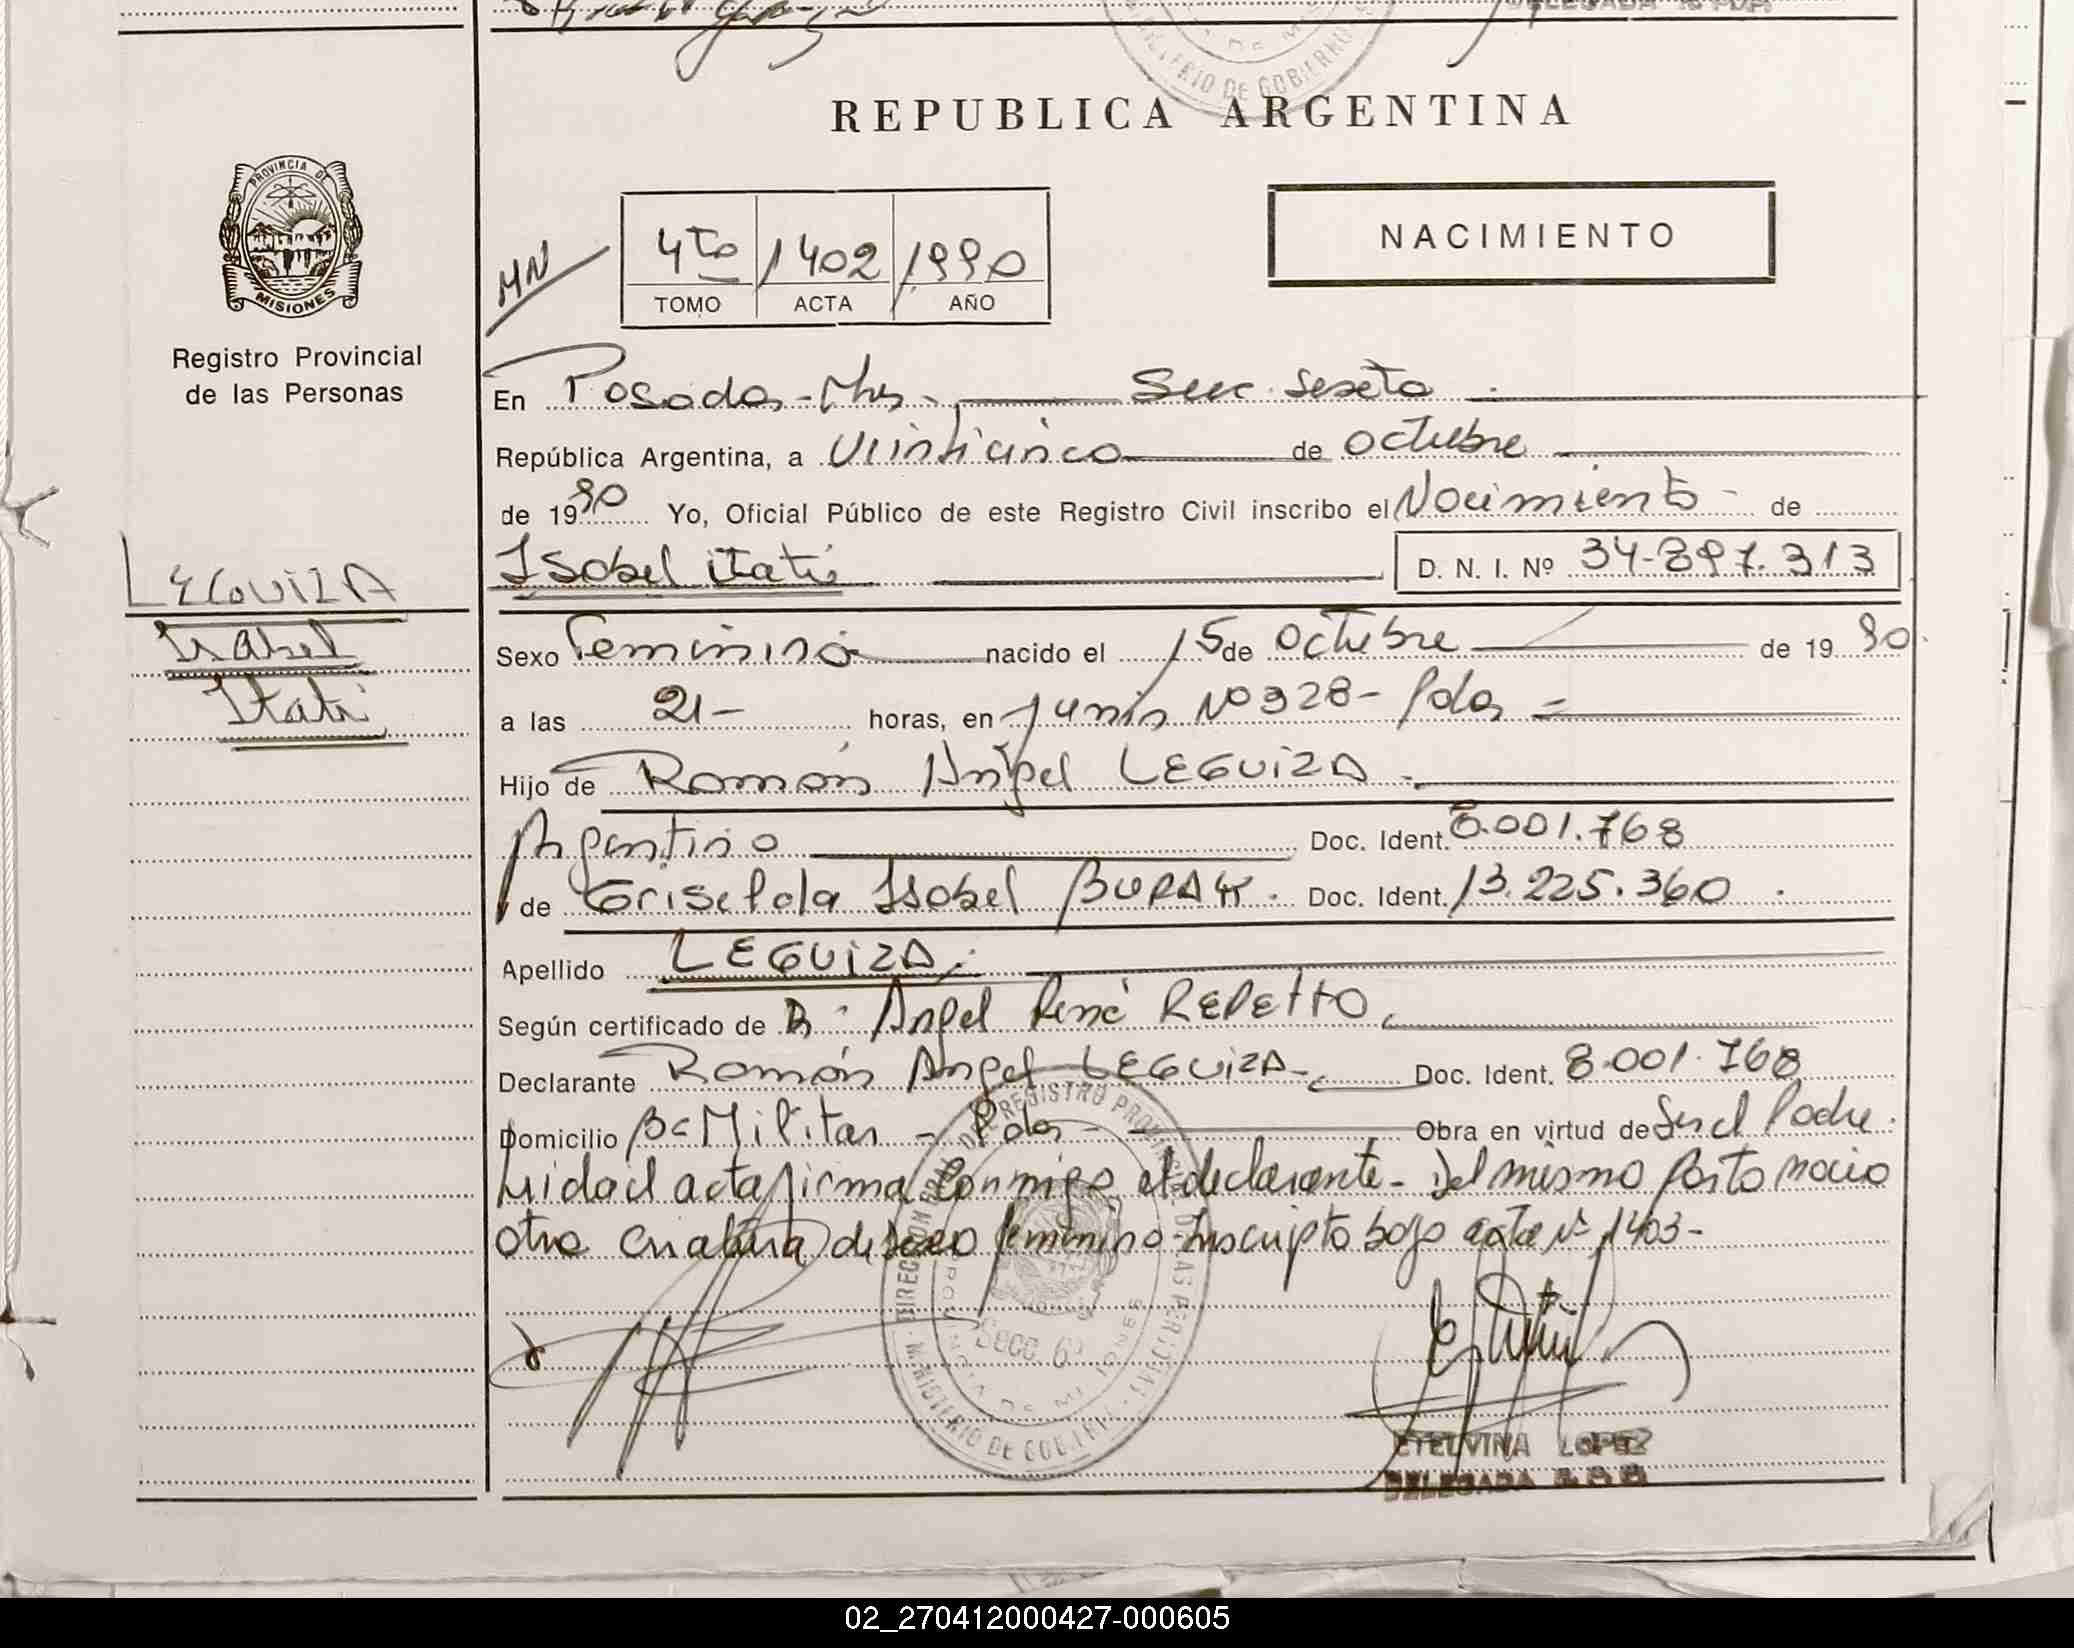 MINISTERIO DE GOBIERNO
REPUBLICA ARGENTINA
PROVINCIA DE
MISIONES
Registro Provincial
de las Personas
HN
4to 1402 1990
TOMO ACTA AÑO
NACIMIENTO
En Posadas-Mnes. Secc. sexta
República Argentina, a Veinticinco de octubre
de 1990 Yo, Oficial Público de este Registro Civil inscribo el Nacimiento - de
Isabel itatí D. N. I. Nº 34-897.313
LEGUIZA
Isabel
Itatí
Sexo Femenino nacido el 15 de octubre de 1990.
a las 21- horas, en Junín Nº 328- Pdas
Hijo de Román Angel LEGUIZA.
Argentino Doc. Ident. 8.001.768
de Griselda Isabel BURAK. Doc. Ident. 13.225.360
Apellido LEGUIZA.
Según certificado de Dr. Angel René REPETTO
Declarante Román Angel LEGUIZA- Doc. Ident. 8.001.768
Domicilio Bº Militar - Pdas - Obra en virtud de Ser el Padre.
Leida el acta firma conmigo el declarante - Del mismo parto nacio
otra criatura de sexo femenino - Inscripto bajo acta Nº 1403-
DIRECCION GRAL. DE REGISTRO PROVINCIAL DE LAS PERSONAS
PROVINCIA DE MISIONES
Secc. 6ª
MINISTERIO DE GOBIERNO
ETELVINA LOPEZ
DELEGADA
02_270412000427-000605